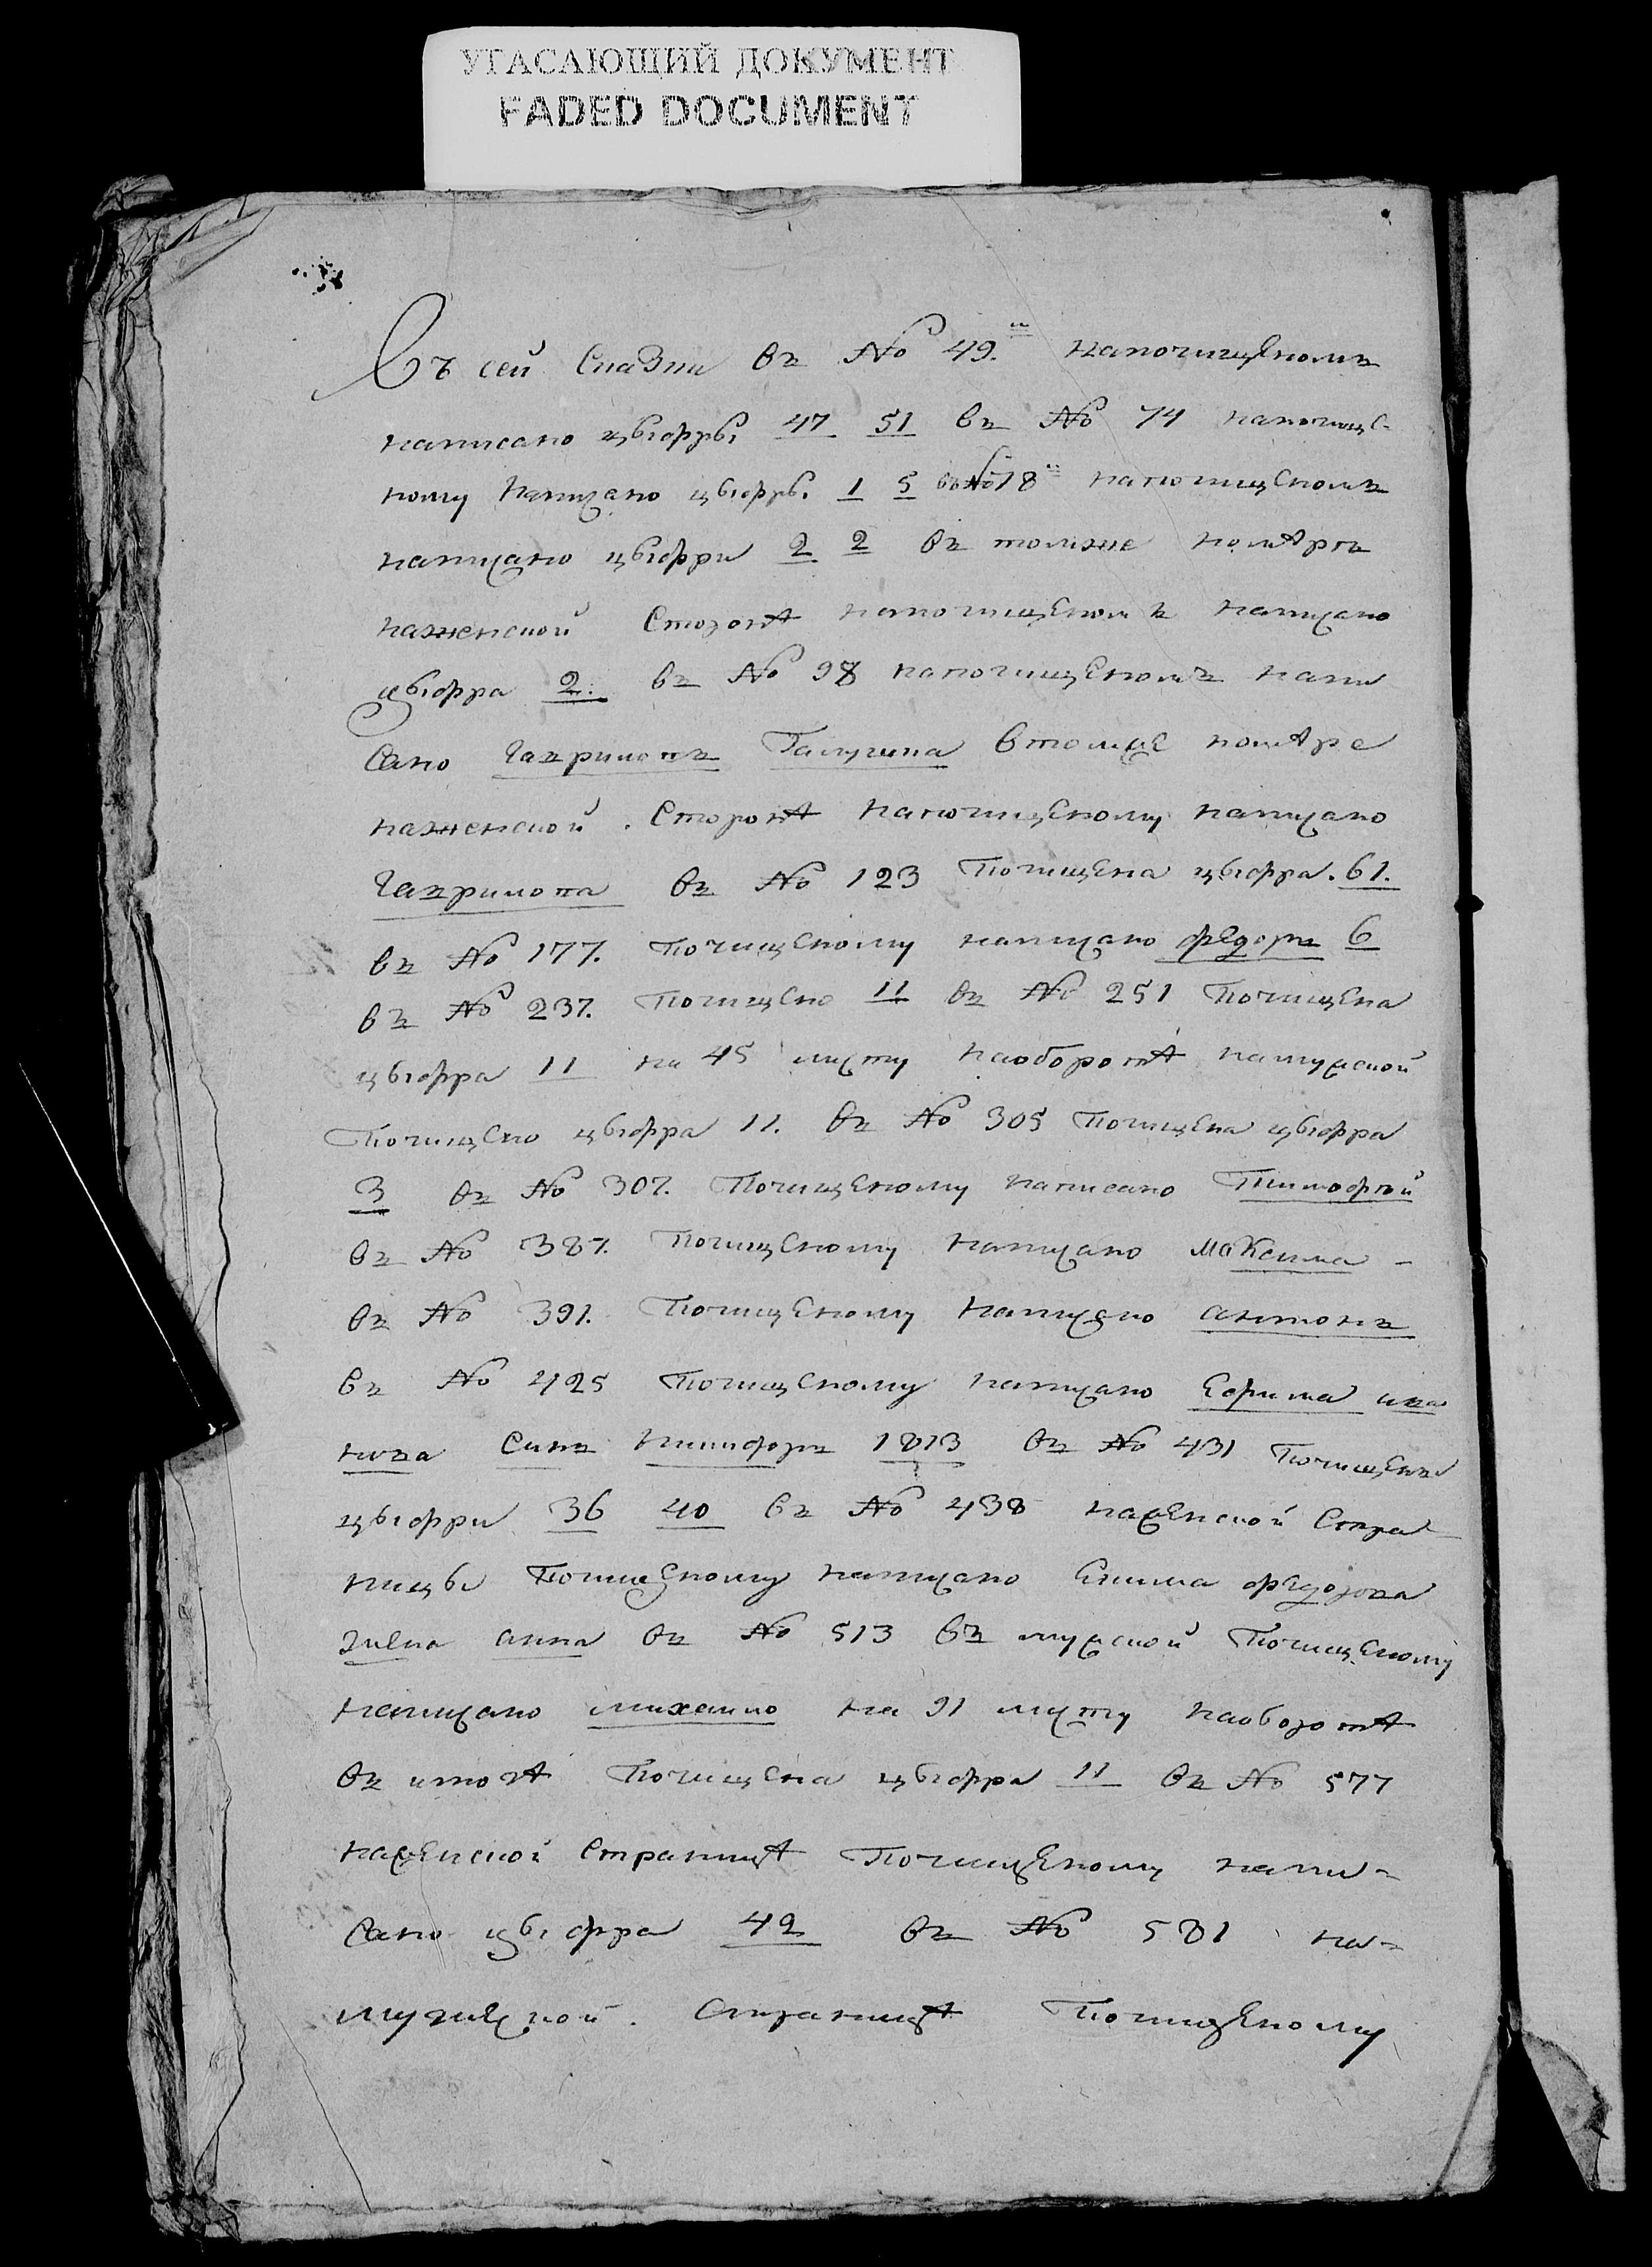 УГАСАЮЩИЙ ДОКУМЕНТ
FADED DOCUMENT
Въ сей Сказки въ № 49.м напочищеномъ
написано цыфры 47 51 въ № 74 напочище-
ному написано цыфры 1 5 въ № 78м напочищеномъ
написано цыфри 2 2 въ томже номѣръ
наженской Сторонѣ напочищеномъ написано
цыфра 2. въ № 98 напочищеномъ напи
сано Гавриловъ Галузина втомже номѣре
наженской. Сторонѣ напочищеному написано
Гаврилова въ № 123 Почищена цыфра. 61.
въ № 177. Почищеному написано федоръ 6
въ № 237. Почищено 11 въ № 251 Почищена
цыфра 11 на 45 листу наоборотѣ намужской
Почищено цыфра 11. въ № 305 Почищена цыфра
3 въ № 307. Почищеному написано Тимофѣй
въ № 387. Почищеному написано Максима -
въ № 391. Почищеному написано антонъ
въ № 425 Почищеному написано Ефима ива
нова Синъ Никифоръ 1813 въ № 431 Почищены
цыфри 36 40 въ № 438 наженской Стра
ницы Почищеному написано Екима федорова
жена анна въ № 513 въ мужской Почищеному
написано михаило на 91 листу наоборотѣ
въ итогѣ Почищена цыфра 11 въ № 577
наженской Страницѣ Почищеному напи-
сано цыфра 42 въ № 581 на-
мужеской. Страницѣ Почищеному